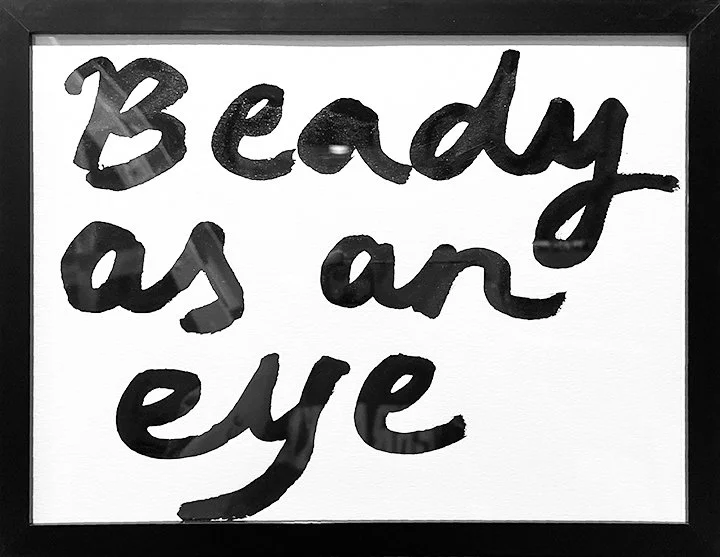 Beady
as an
eye